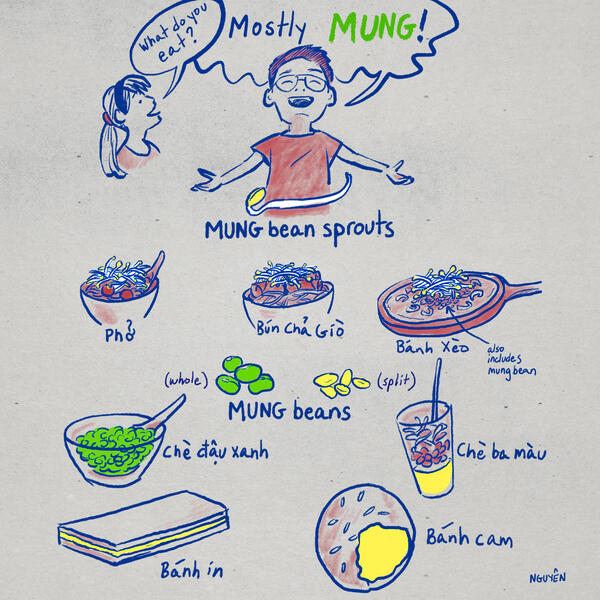 What do you
eat?
Mostly MUNG!
MUNG bean sprouts
Phở
Bún Chả Giò
Bánh Xèo
also
includes
mung bean
(whole)
(split)
MUNG beans
Chè đậu xanh
Chè ba màu
Bánh ín
Bánh cam
NGUYÊN